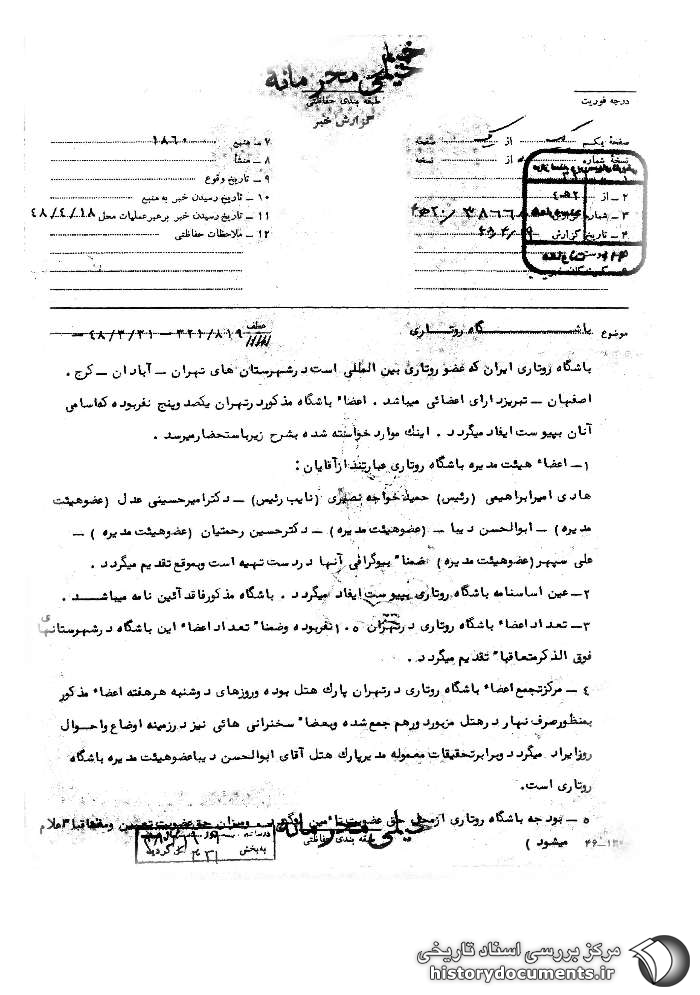 خیلی محرمانه
طبقه بندی حفاظتی
گزارش خبر
درجه فوریت
صفحهٔ یکم از صفحه
نسخهٔ شماره از نسخه
۲ ــ از
۳ ــ شماره
۴ ــ تاریخ گزارش
۷ ــ منبع ۱۸۶۰
۸ ــ منشأ
۹ ــ تاریخ وقوع
۱۰ ــ تاریخ رسیدن خبر به منبع
۱۱ ــ تاریخ رسیدن خبر برهبر عملیات محل ۴۸/۴/۱۸
۱۲ ــ ملاحظات حفاظتی
موضوع باشگاه روتاری
عطف ۳۲۱/۸۱۹ ــ ۴۸/۳/۳۱
باشگاه روتاری ایران که عضو روتاری بین المللی است درشهرستان های تهران ــ آبادان ــ کرج .
اصفهان ــ تبریز دارای اعضائی میباشد . اعضاء باشگاه مذکور درتهران یکصد وپنج نفربوده که اسامی
آنان بپیوست ایفاد میگردد . اینک موارد خواسته شده بشرح زیرباستحضار میرسد .
۱ــ اعضاء هیئت مدیره باشگاه روتاری عبارتند ازآقایان :
هادی امیرابراهیمی (رئیس) حمید خواجه نصیری (نایب رئیس) ــ دکترامیرحسینی عدل (عضوهیئت
مدیره) ــ ابوالحسن دیبا ــ (عضوهیئت مدیره) ــ دکترحسین رحمتیان (عضوهیئت مدیره ) ــ
علی سپهر(عضوهیئت مدیره) ضمناً بیوگرافی آنها دردست تهیه است وبموقع تقدیم میگردد .
۲ــ عین اساسنامه باشگاه روتاری بپیوست ایفاد میگردد . باشگاه مذکورفاقد آئین نامه میباشــد .
۳ــ تعداد اعضاء باشگاه روتاری درتهران ۱۰۵ نفربوده وضمناً تعداد اعضاء این باشگاه درشهرستانهای
فوق الذکرمتعاقباً تقدیم میگردد .
٤ ــ مرکزتجمع اعضاء باشگاه روتاری درتهران پارک هتل بوده وروزهای دوشنبه هرهفته اعضاء مذکور
بمنظورصرف نهار درهتل مزبور دورهم جمع شده وبعضاً سخنرانی هائی نیز درزمینه اوضاع واحوال
روزایراد میگردد وبرابرتحقیقات معموله مدیرپارک هتل آقای ابوالحسن دیباعضوهیئت مدیره باشگاه
روتاری است.
۵ ــ بودجه باشگاه روتاری ازمحل حق عضویت تأمین میگردد ومیزان حق عضویت تعیین ومتعاقباً اعلام
میشود )
خیلی محرمانه
طبقه بندی حفاظتی
به بخش ۳۲۱
گردید
مرکز بررسی اسناد تاریخی
historydocuments.ir